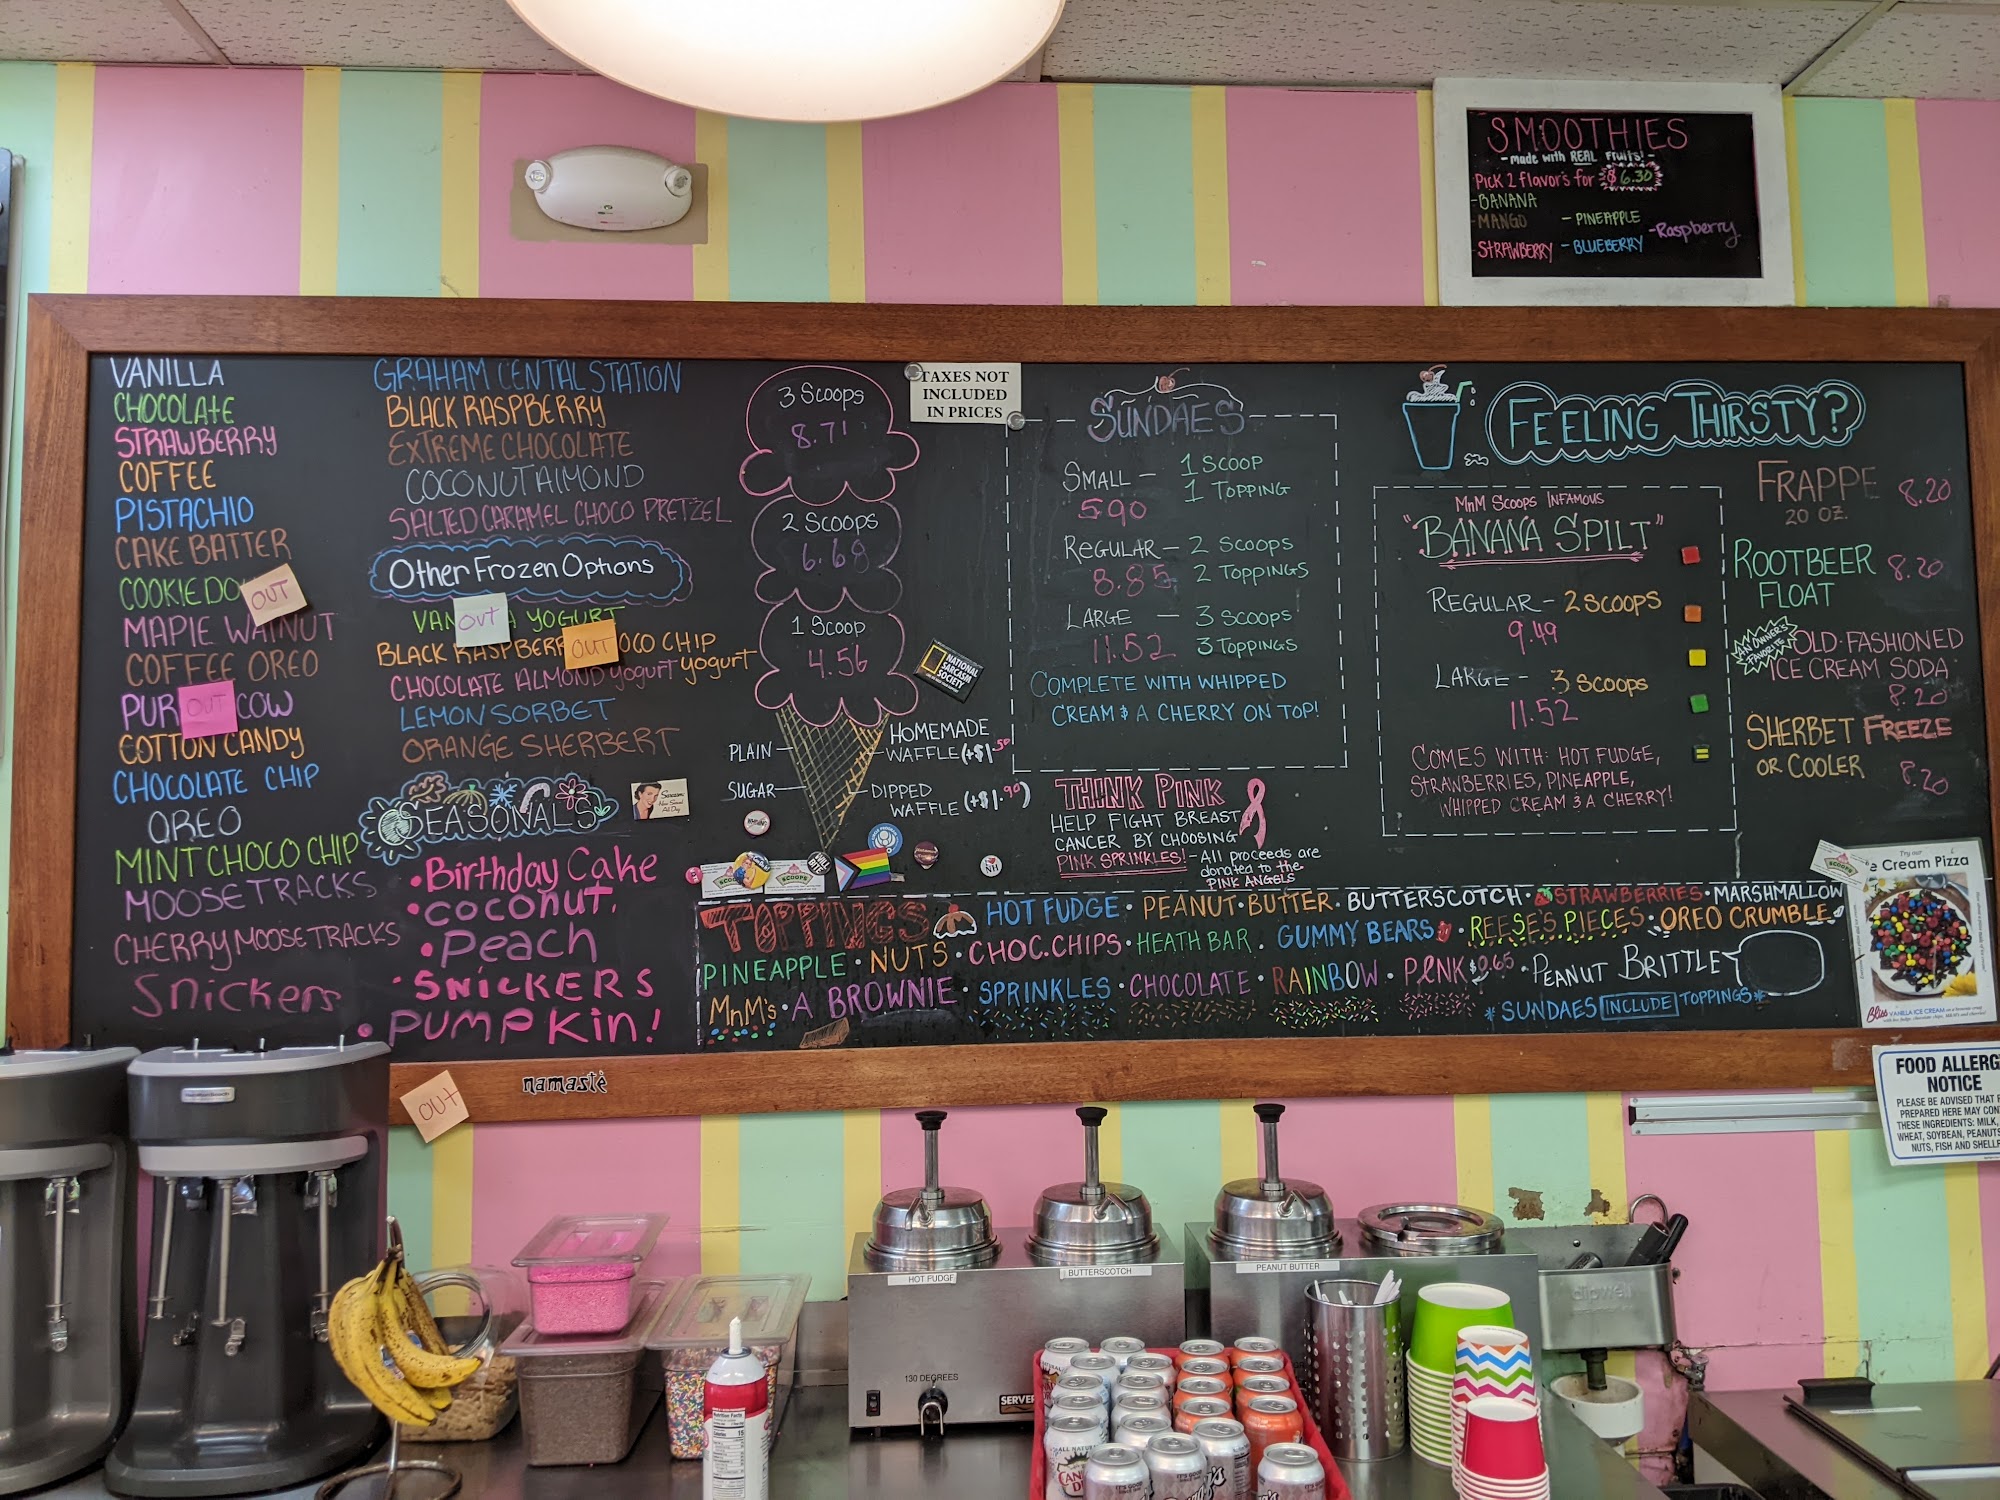 SMOOTHIES
- made with REAL fruits! -
Pick 2 flavors for $6.30
- BANANA
- MANGO
- PINEAPPLE
- Raspberry
- STRAWBERRY
- BLUEBERRY
VANILLA
CHOCOLATE
STRAWBERRY
COFFEE
PISTACHIO
CAKE BATTER
COOKIE DO
OUT
MAPLE WALNUT
COFFEE OREO
PUR
OUT
COW
COTTON CANDY
CHOCOLATE CHIP
OREO
MINT CHOCO CHIP
MOOSE TRACKS
CHERRY MOOSE TRACKS
Snickers
GRAHAM CENTAL STATION
BLACK RASPBERRY
EXTREME CHOCOLATE
COCONUT ALMOND
SALTED CARAMEL CHOCO PRETZEL
Other Frozen Options
VAN
OUT
A YOGURT
BLACK RASPBERR
OUT
OCO CHIP
yogurt
CHOCOLATE ALMOND yogurt
LEMON SORBET
ORANGE SHERBERT
SEASONALS
• Birthday Cake
• coconut
• Peach
• SNICKERS
• PUMPKin!
3 Scoops
8.71
2 Scoops
6.68
1 Scoop
4.56
PLAIN
SUGAR
HOMEMADE
WAFFLE (+$1.50
DIPPED
WAFFLE (+$1.90)
NATIONAL
SARCASM
SOCIETY
TAXES NOT
INCLUDED
IN PRICES
SUNDAES
SMALL — 1 SCOOP
5.90 1 TOPPING
REGULAR — 2 SCOOPS
8.85 2 TOPPINGS
LARGE — 3 SCOOPS
11.52 3 TOPPINGS
COMPLETE WITH WHIPPED
CREAM & A CHERRY ON TOP!
THINK PINK
HELP FIGHT BREAST
CANCER BY CHOOSING
PINK SPRINKLES! - All proceeds are
donated to the
PINK ANGELS
FEELING THIRSTY?
MnM SCOOPS INFAMOUS
"BANANA SPILT"
REGULAR - 2 SCOOPS
9.49
LARGE - 3 SCOOPS
11.52
COMES WITH: HOT FUDGE,
STRAWBERRIES, PINEAPPLE,
WHIPPED CREAM & A CHERRY!
FRAPPE 8.20
20 OZ.
ROOTBEER
FLOAT 8.20
AN OWNER'S
FAVORITE
OLD-FASHIONED
ICE CREAM SODA
8.20
SHERBET FREEZE
OR COOLER
8.20
TOPPINGS
HOT FUDGE • PEANUT BUTTER • BUTTERSCOTCH • STRAWBERRIES • MARSHMALLOW
PINEAPPLE • NUTS • CHOC. CHIPS • HEATH BAR • GUMMY BEARS • REESE'S PIECES • OREO CRUMBLE
MnM's • A BROWNIE • SPRINKLES • CHOCOLATE • RAINBOW • PINK $0.65 • PEANUT BRITTLE
*SUNDAES INCLUDE TOPPINGS*
Try our
e Cream Pizza
Bliss VANILLA ICE CREAM
OUT
namastè
FOOD ALLERG
NOTICE
PLEASE BE ADVISED THAT F
PREPARED HERE MAY CON
THESE INGREDIENTS: MILK,
WHEAT, SOYBEAN, PEANUTS
NUTS, FISH AND SHELLF
HOT FUDGE
BUTTERSCOTCH
PEANUT BUTTER
130 DEGREES
SERVER
dipwell